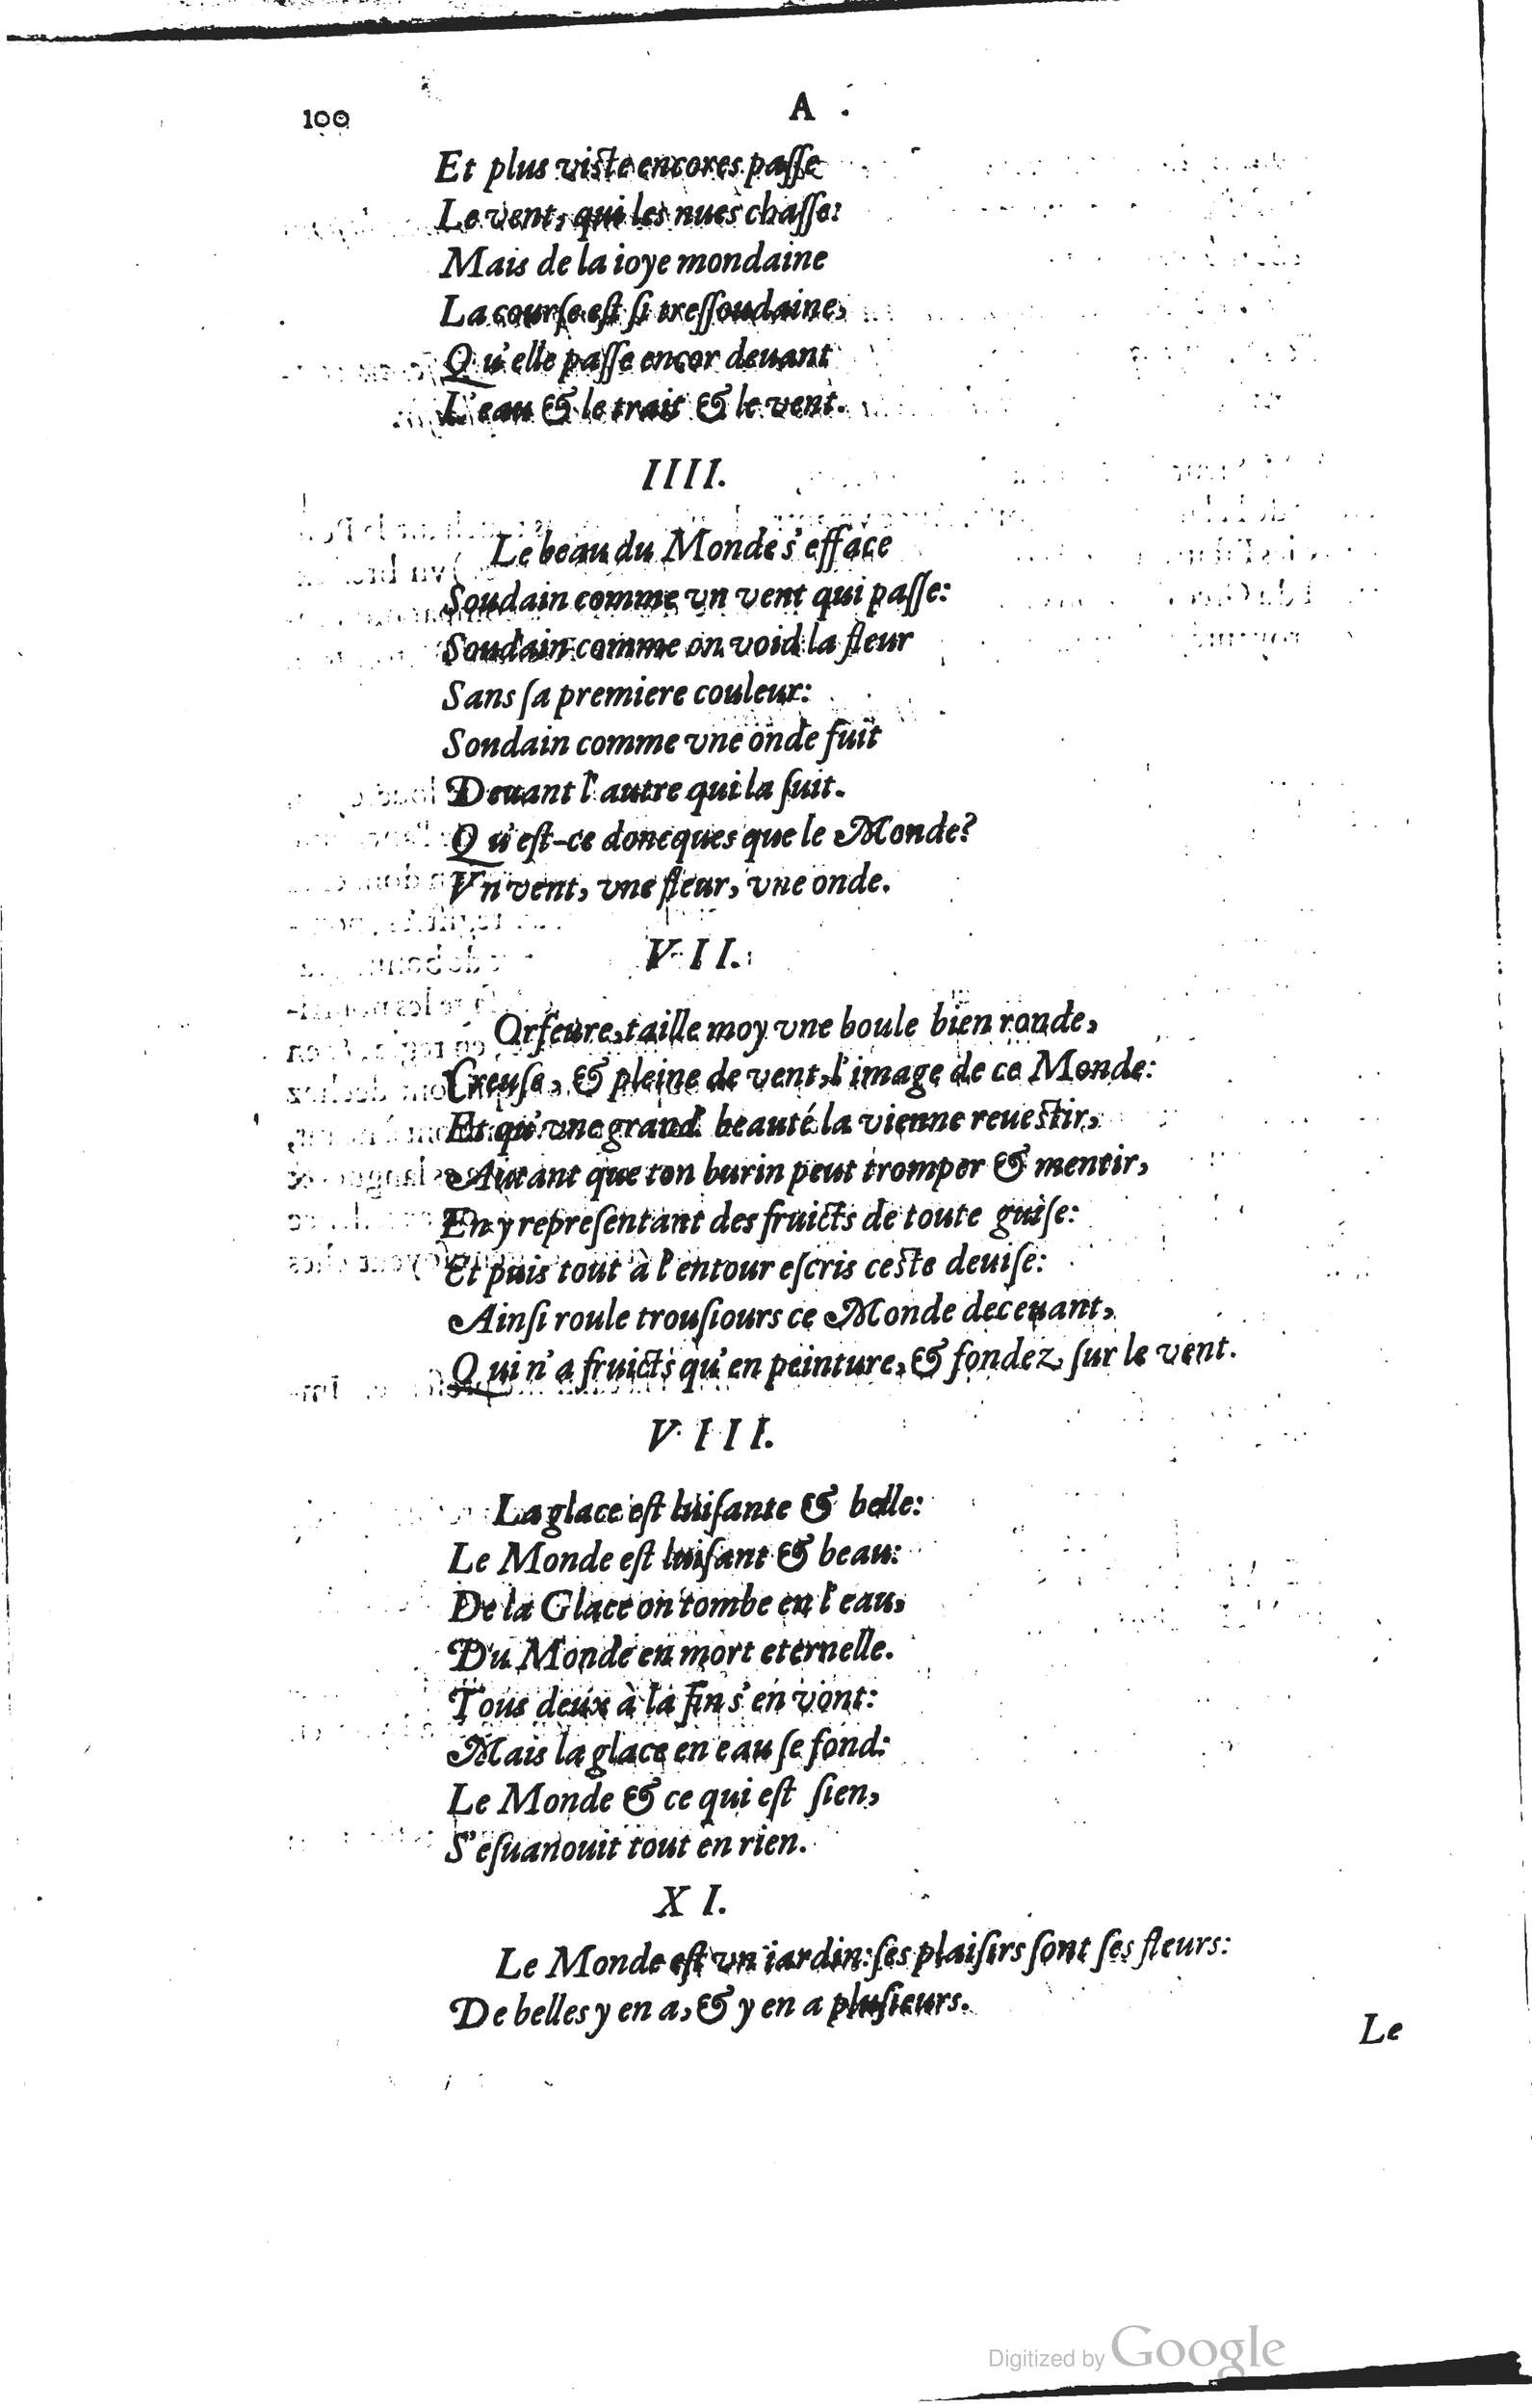 100
A
Et plus viste encores paſſe
Le vent, qui les nues chaſſe:
Mais de la ioye mondaine
La courſe eſt ſi treſſoudaine,
Qu'elle paſſe encor deuant
L'eau & le trait & le vent.
IIII.
Le beau du Monde s'efface
Soudain comme vn vent qui paſſe:
Soudain comme on void la fleur
Sans ſa premiere couleur:
Soudain comme vne onde fuit
Deuant l'autre qui la ſuit.
Qu'eſt-ce doncques que le Monde?
Vn vent, vne fleur, vne onde.
VII.
Orfeure, taille moy vne boule bien ronde,
Creuſe, & pleine de vent, l'image de ce Monde:
Et qu'vne grand' beauté la vienne reuestir,
Autant que ton burin peut tromper & mentir,
En y repreſentant des fruicts de toute guiſe:
Et puis tout à l'entour eſcris ceste deuiſe:
Ainſi roule trouſiours ce Monde deceuant,
Qui n'a fruicts qu'en peinture, & fondez ſur le vent.
VIII.
La glace eſt luiſante & belle:
Le Monde eſt luiſant & beau:
De la Glace on tombe en l'eau,
Du Monde en mort eternelle.
Tous deux à la fin s'en vont:
Mais la glace en eau ſe fond:
Le Monde & ce qui eſt ſien,
S'eſuanouit tout en rien.
XI.
Le Monde eſt vn iardin: ſes plaiſirs ſont ſes fleurs:
De belles y en a, & y en a pluſieurs.
Le
Digitized by Google